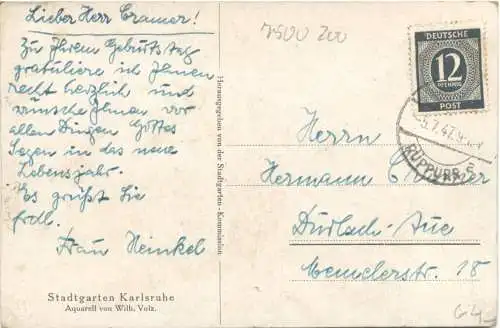 Lieber Herr Cramer!
Zu Ihrem Geburtstag
gratuliere ich Ihnen
recht herzlich und
wünsche Ihnen vor
allen Dingen Gottes
Segen in das neue
Lebensjahr.
Es grüßt Sie
frdl.
Frau Heinkel
Stadtgarten Karlsruhe
Aquarell von Wilh. Volz.
Herausgegeben von der Stadtgarten-Kommission
7500 200
DEUTSCHE
12
PFENNIG
POST
5.7.47.9
RÜPPURR
Herrn
Hermann Cramer
Durlach-Aue
Memelerstr. 18